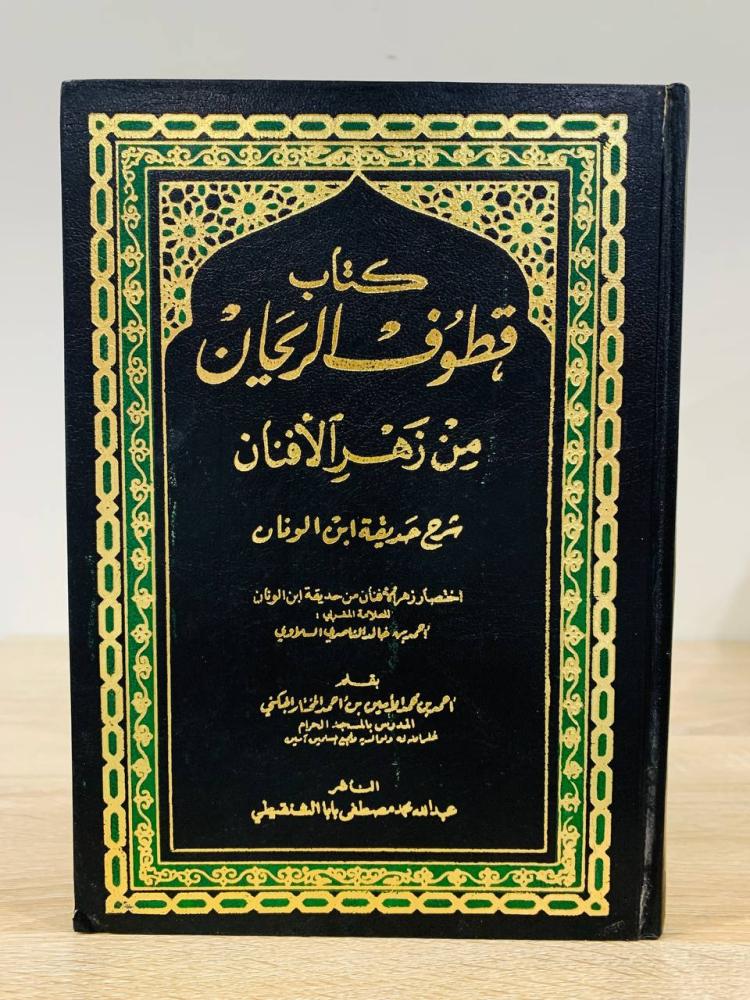 كتاب
قطوف الريحان
مِنْ زَهْرِ الأفنان
شرح حديقة ابن الونان
اختصار زهر الأفنان من حديقة ابن الونان
للعلامة المغربي :
أحمد بن خالد الناصري السلاوي
بقلم
أحمد بن محمد الأمين بن أحمد المختار الجكني
المدرس بالمسجد الحرام
غفر الله له ولوالديه ولجميع المسلمين آمين
الناشر
عبدالله محمد مصطفى بابا الشنقيطي